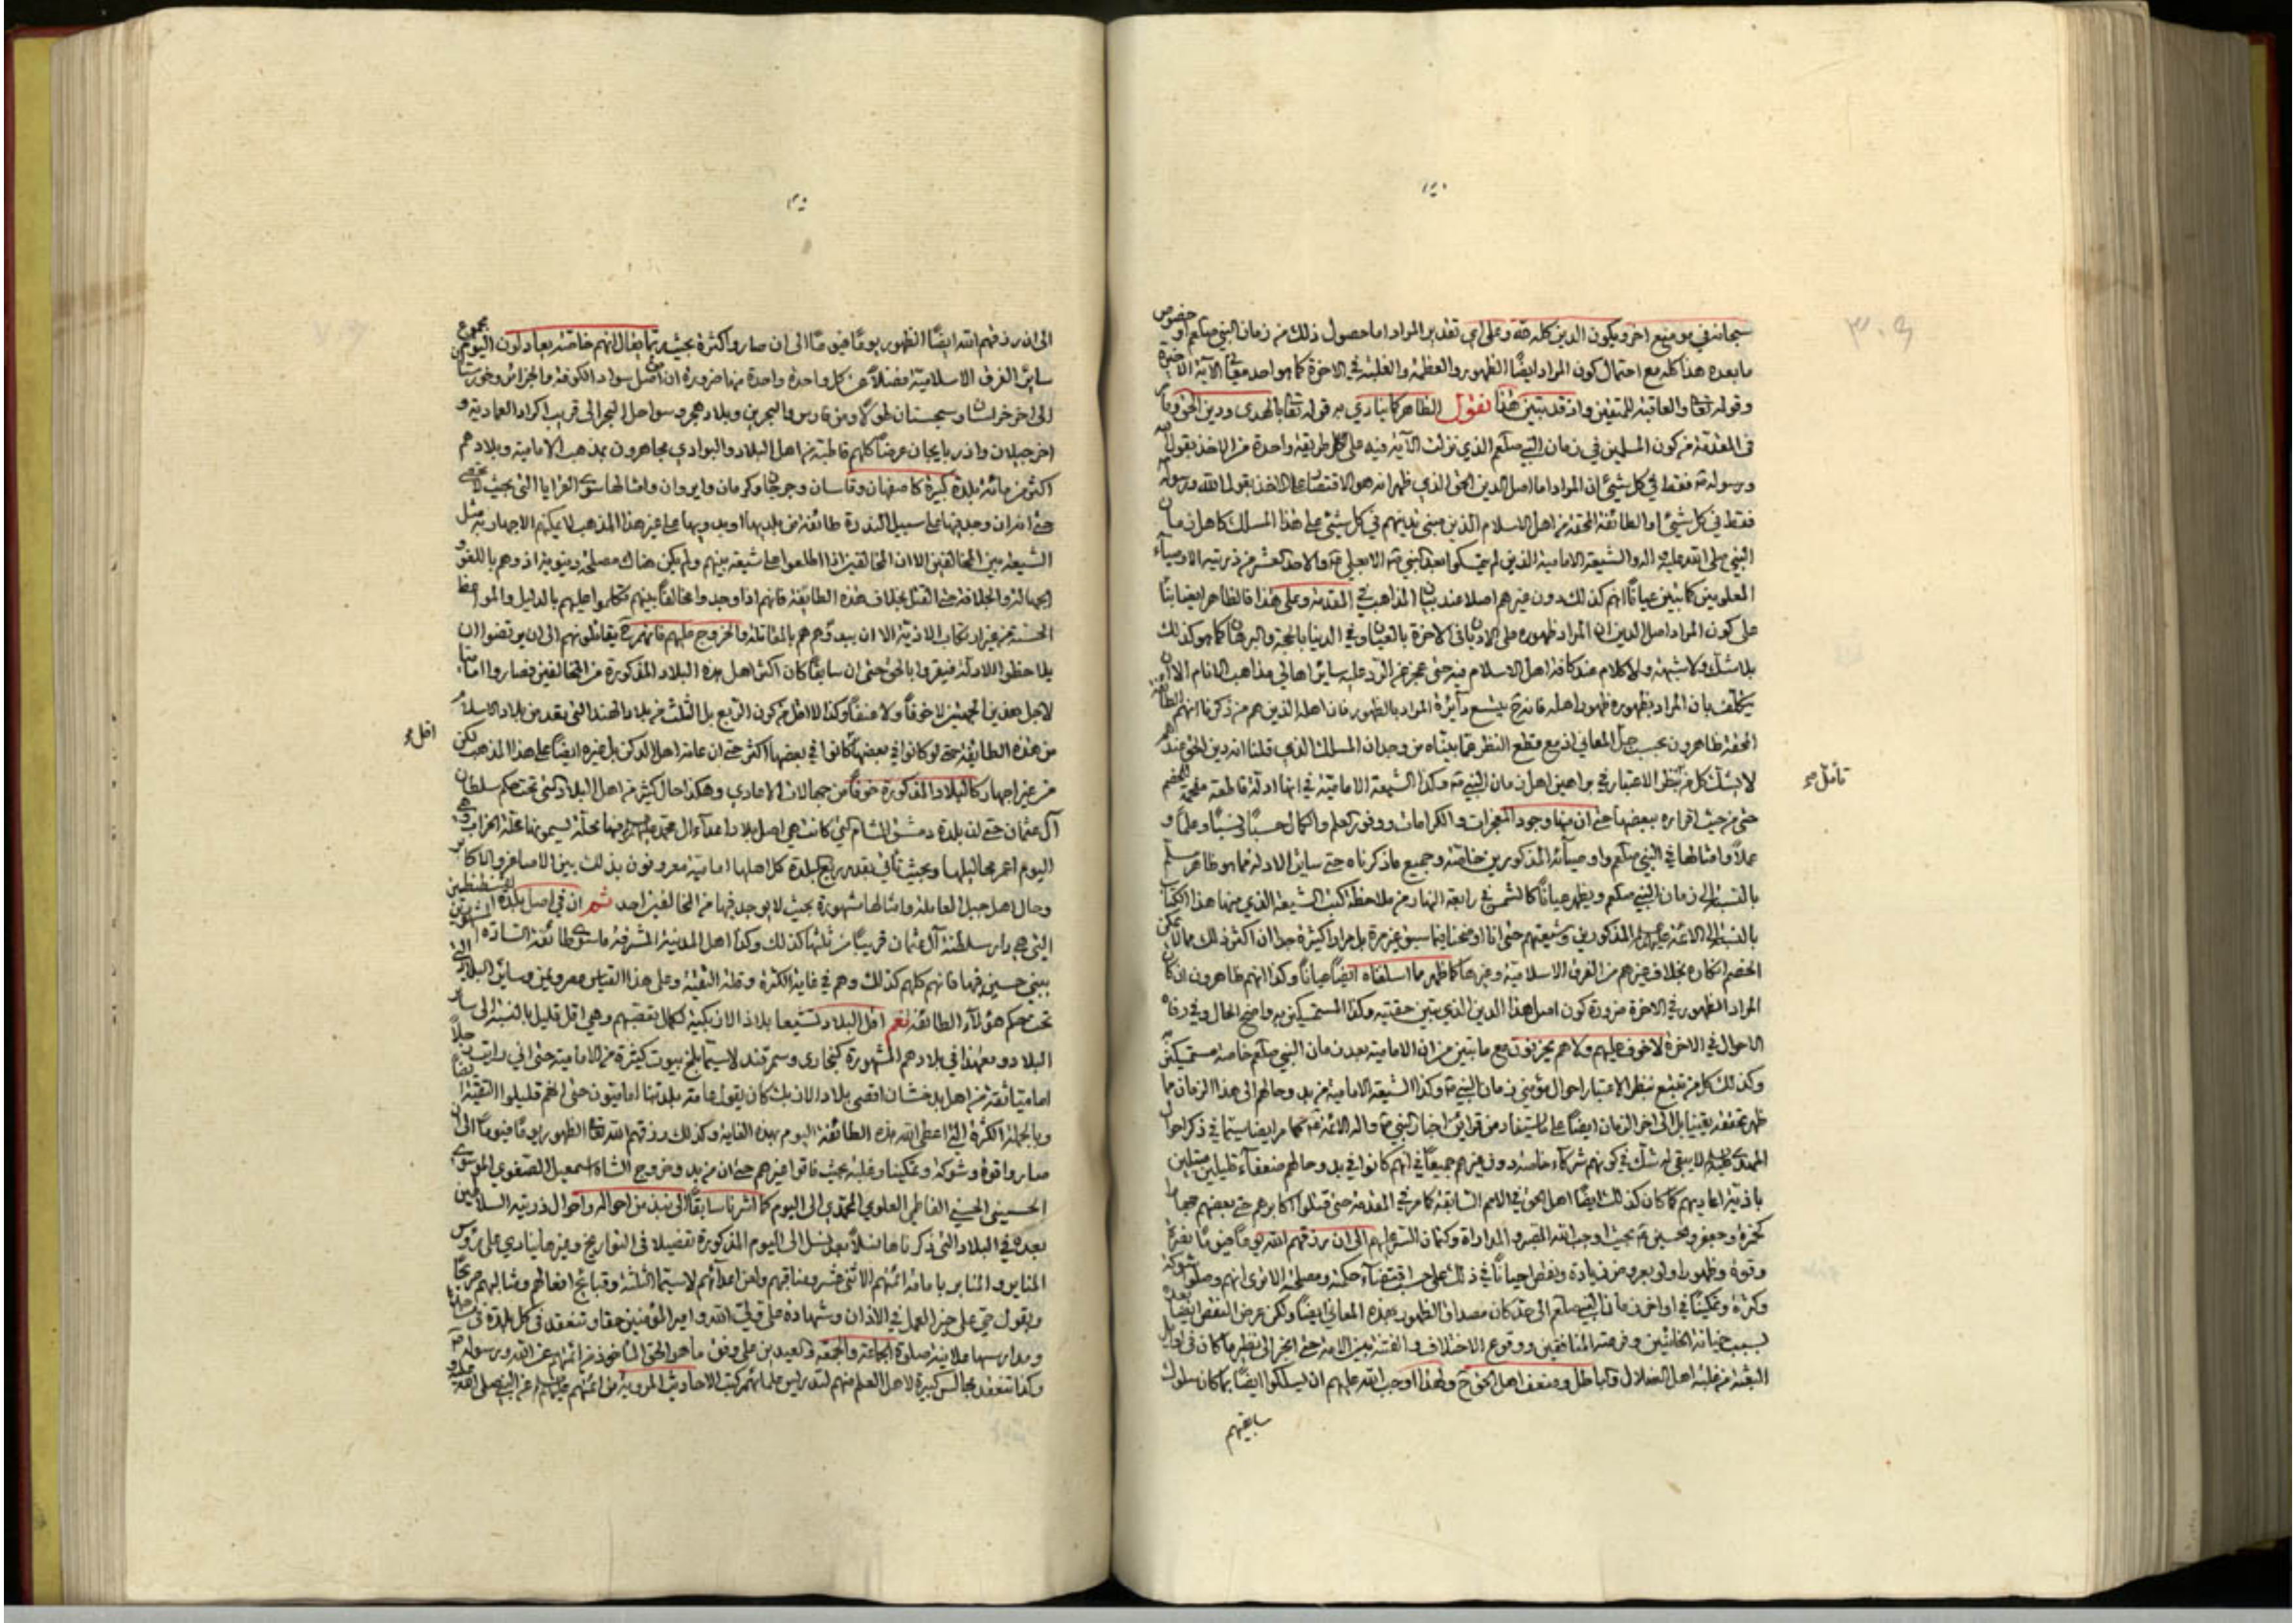 ٣٠٩
سبحانه في موضع اخر ويكون الدين كله لله وعلى اي تقدير المراد اما حصول ذلك من زمان النبي صلعم او خصوص
ما بعده هذا كله مع احتمال كون المراد ايضًا الظهور والعظمة والغلبة في الاخرة كما هو احد معاني الآية الاخيرة
وقوله تعا والعاقبة للمتقين واذ قد تبين هذا نقول الظاهر كما ينادي به قوله تعا بالهدى ودين الحق وما مر
في المقدمة من كون المسلمين في زمان النبي صلعم الذي نزلت الآية فيه على طريقة واحدة من الاخذ بقول الله
ورسوله فقط في كل شيئ ان المراد اما اصل الدين الحق الذي ظهر انه هو الاقتصار على الاخذ بقول الله ورسوله
فقط في كل شيئ او الطائفة المحقة من اهل الاسلام الذين مبنى تدينهم في كل شيئ على هذا المسلك كاهل زمان
النبي صلى الله عليه واله والشيعة الامامية الذين لم يتمسكوا بعد النبي الا بعلي والاحد عشر من ذريته الاوصياء
المعلومين كما تبين عيانًا انهم كذلك دون غيرهم اصلا عند بيان المذاهب في المقدمة وعلى هذا فالظاهر ايضا بناءً
على كون المراد اصل الدين ان المراد ظهوره على الاديان في الاخرة بالعيان وفي الدنيا بالحجة والبرهان كما هو كذلك
بلا شك ولا شبهة ولا كلام عند كافة اهل الاسلام فيه حتى عجز عن الرد عليه سائر اهالي مذاهب الانام الا ان
يتكلف بان المراد بظهوره ظهور اهله فانه ح يتسع دائرة المراد بالظهور فان اهله الذين هم من ذكرنا انهم الطائفة
المحقة ظاهرون بحسب جل المعاني اذ مع قطع النظر عما بيناه من وجدان المسلك الذي قلنا انه دين الحق عندهم
لا يشك كل من نظر الاعتبار في براهين اهل زمان النبي وكذا الشيعة الامامية في انها ادلة قاطعة مفحمة للخصم
تأمل
حتى من حيث اقراره ببعضها حتى ان منها وجود المعجزات والكرامات ووفور العلم والكمال حسبًا ونسبًا وعلمًا و
عملًا وامثالها في النبي صلعم واوصيائه المذكورين خاصة وجميع ما ذكرناه حتى سائر الادلة مما هو ظاهر مسلم
بالنسبة الى زمان النبي صلعم ويظهر عيانًا كالشمس في رابعة النهار من ملاحظة كتب الشيعة الذي منها هذا الكتاب
بالنسبة الى الائمة المذكورين وشيعتهم حتى انا اوضحنا فيما سبق غير مرة بل مرارا كثيرة جدا ان اكثر ذلك مما لا يمكن
الخصم انكاره بخلاف غيرهم من الفرق الاسلامية وغيرها كما ظهر مما اسلفناه ايضًا عيانًا وكذا انهم ظاهرون ان كان
المراد الظهور في الاخرة ضرورة كون اهل هذا الدين الذي تبين حقيته وكذا المستمسكين به واضح الحال وفي رفاه
الاحوال في الاخرة لا خوف عليهم ولا هم يحزنون مع ما تبين من ان الامامية بعد زمان النبي صلعم خاصة مستمسكين به
وكذلك كل من تتبع بنظر الاعتبار احوال مؤمني زمان النبي وكذا الشيعة الامامية من بدو حالهم الى هذا الزمان مما
ظهر تحققه يقينا بل الى اخر الزمان ايضًا على ما يستفاد من قرائن اخبار النبي واله الائمة كما مر ايضا سيما في ذكر احوال
المهدي لا يبقى له شك في كونهم شركاء خاصة دون غيرهم جميعًا في انهم كانوا في بدو حالهم ضعفاء قليلين مبتلين
باذية اعاديهم كما كان كذلك ايضًا اهل الحق في الامم السابقة كما مر في المقدمة حتى قتلوا اكابرهم حتى بعضهم جهارا
كحمزة وجعفر وحسين بحيث اوجب الله الصبر والمداراة وكتمان السر عليهم الى ان رزقهم الله يومًا فيومًا نفرة
وقوة وظهورا ولو بعروض زيادة ونقص احيانًا في ذلك على حسب اقتضاء حكمة ومصلحة الا ترى انهم وصلوا شوكة
وكثرة وتمكينًا في اواخر زمان النبي صلعم الى حد كان مصداق الظهور بهذه المعاني ايضًا ولكن عرض النقص ايضًا بعده
بسبب خيانة الخائنين وفرصة المنافقين ووقوع الاختلاف والفتنة بين الامة حتى انجر الى نظير ما كان في اوايل
البعثة من غلبة اهل الضلال والباطل وضعف اهل الحق ح ولهذا اوجب الله عليهم ان يسلكوا ايضًا بما كان سلوك
سابقيهم
الى ان رزقهم الله ايضًا الظهور يومًا فيومًا الى ان صاروا كثرة بحيث ربما يقال انهم خاصة يعادلون اليوم مجموع
سائر الفرق الاسلامية فضلًا عن كل واحدة واحدة منها ضرورة ان اهل سواد الكوفة والجزائر وخوزستان
الى اخر خراسان وسجستان طولًا ومن فارس والبحرين وبلاد هجر وسواحل البحر الى قريب اكراد العمادية و
اخر جيلان واذربايجان عرضًا كلهم قاطبة من اهل البلاد والبوادي مجاهرون بمذهب الامامية وبلادهم
اكثر من مائة بلدة كبيرة كاصفهان وقاسان وجرجان وكرمان وايروان وامثالها سوى القرايا التي بحيث لا تحصى
حتى انه ان وجد فيها على سبيل الندرة طائفة من بلديها او بدويها على غير هذا المذهب لا يمكنهم الاجهار به مثل
الشيعة بين المخالفين الا ان المخالفين اذا اطلعوا على شيعة بينهم ولم يكن هناك مصلحة دنيوية اذوهم باللغو و
الجهالة والجلافة حتى القتل بخلاف هذه الطائفة فانهم اذا وجدوا مخالفًا بينهم تكلموا عليهم بالدليل والمواعظ
الحسنة من غير ارتكاب الاذية الا ان يبدؤهم هم بالمقاتلة والخروج عليهم فانهم ح يقاتلونهم الى ان يرتضوا ان
يلاحظوا الادلة فيقروا بالحق حتى ان سابقًا كان اكثر اهل هذه البلاد المذكورة من المخالفين فصاروا امامية
لاجل هذين الجهتين لا خوفًا ولا عنفًا وكذا لا اقل من كون الربع بل الثلث من بلاد الهند التي تعد من بلاد الاسلام
اقل
من هذه الطائفة حتى لو كانوا في بعضها كانوا في بعضها اكثر حتى ان عامة اهل الدكن بل غيره ايضًا على هذا المذهب لكن
من غير اجهار كالبلاد المذكورة خوفًا من جهالات الاعادي وهكذا حال كثير من اهل البلاد التي تحت حكم سلطان
آل عثمان حتى ان بلدة دمشق الشام التي كانت هي اصل بلاد اعداء ال محمد فيها محلة يسمونها محلة الخراب وهي
اليوم اعمر محالها وبحيث تأتي بقدر ربع البلدة كل اهلها امامية معروفون بذلك بين الاصاغر والاكابر
وحال اهل جبل العاملة وامثالها مشهورة بحيث لا يوجد فيها من المخالفين احد ثم ان في اصل بلدة القسطنطين
التي هي دار سلطنة آل عثمان قريبًا من ثلثها كذلك وكذا اهل المدينة المشرفة ما سوى طائفة السادة المشهورين
ببني حسين فيها فانهم كلهم كذلك وهم في غاية الكثرة وقلة التقية وعلى هذا القياس مصر ويمن وسائر البلاد التي
تحت حكم هؤلاء الطائفة نعم اقل البلاد تشيعا بلاد الازبكية لكمال تعصبهم وهي اقل قليل بالنسبة الى سائر
البلاد ومع هذا في بلادهم المشهورة كبخارى وسمرقند لاسيما بلخ بيوت كثيرة من الامامية حتى اني رايت رجلًا
اماميًا ثقة من اهل بدخشان اقصى بلاد الازبك كان يقول عامة بلدتنا اماميون حتى انهم قليلوا التقية ايضًا
وبالجملة الكثرة التي اعطى الله هذه الطائفة اليوم بهذه الغاية وكذلك رزقهم الله تعا الظهور يومًا فيومًا الى ان
صاروا قوة وشوكة وتمكينا وغلبة بحيث فاقوا غيرهم حتى ان من بدو خروج الشاه اسمعيل الصفوي الموسوي
الحسيني الحسني الفاطمي العلوي المحمدي الى اليوم كما اشرنا سابقًا الى نبذ من احواله واحوال ذريته السلاطين
بعده في البلاد التي ذكرناها نسلًا بعد نسل الى اليوم المذكورة تفصيلا في التواريخ وغيرها ينادي على رؤس
المنابر والمنابر بامامة ائمتهم الاثني عشر ومناقبهم ولعن اعدائهم لاسيما الثلثة وقبائح افعالهم ومثالبهم صريحًا
ويقول حي على خير العمل في الاذان وشهادة علي ولي الله وامير المؤمنين حقا وتنعقد في كل بلدة في مساجدها
ومدارسها علانية صلوة الجماعة والجمعة والعيدين على وفق ما هو الحق المأخوذ من ائمتهم عن الله ورسوله
وكذا تنعقد مجالس كبيرة لاهل العلم منهم لتدريس علمائهم كتب الاحاديث المروية من ائمتهم عن النبي صلى الله